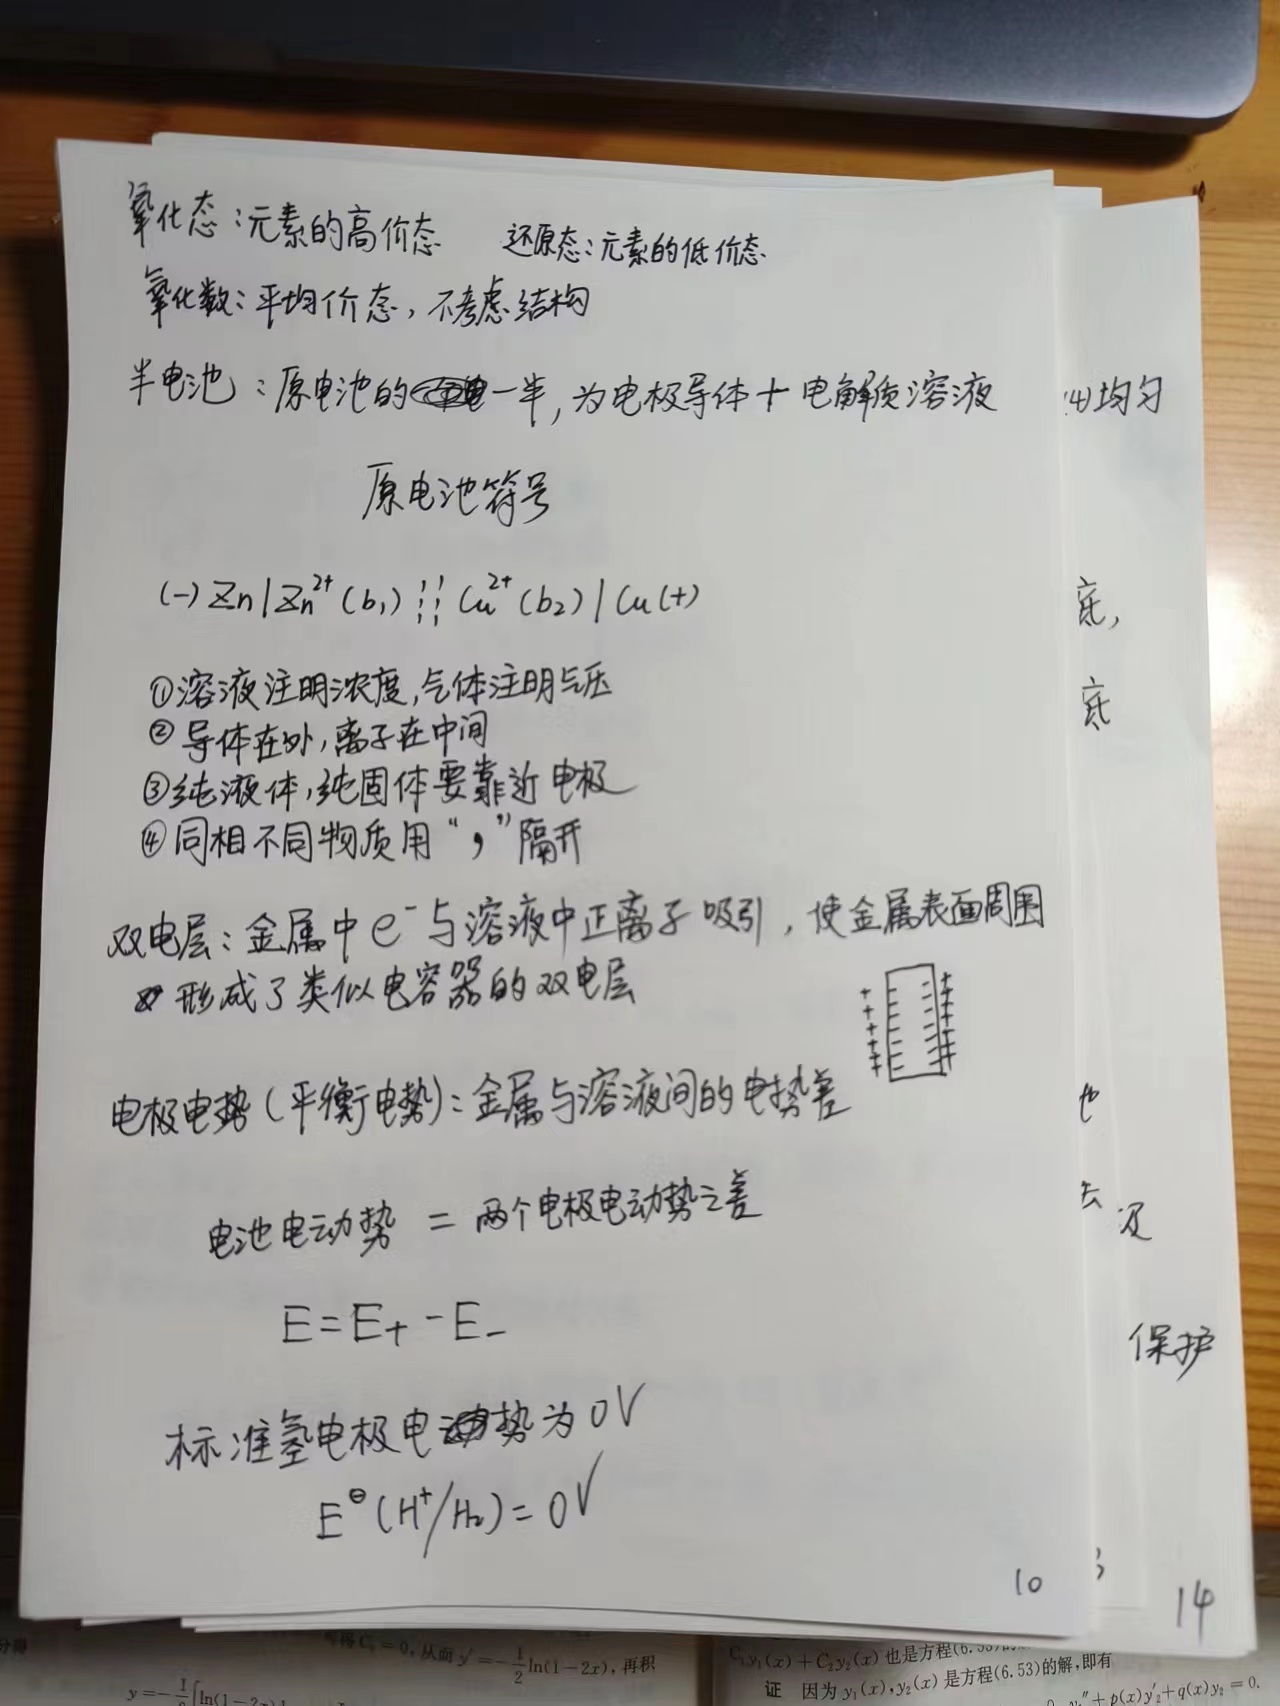 氧化态：元素的高价态 还原态：元素的低价态
氧化数：平均价态，不考虑结构
半电池：原电池的一半，为电极导体+电解质溶液
(4)均匀
原电池符号
(-) Zn | Zn²⁺ (b₁) ¦¦ Cu²⁺ (b₂) | Cu (+)
底，
①溶液注明浓度，气体注明气压
底
②导体在外，离子在中间
③纯液体，纯固体要靠近电极
④同相不同物质用“，”隔开
双电层：金属中e⁻与溶液中正离子吸引，使金属表面周围
形成了类似电容器的双电层
电极电势(平衡电势)：金属与溶液间的电势差
电池电动势 = 两个电极电动势之差
E = E₊ - E₋
保护
标准氢电极电势为0V
E^⊖ (H⁺/H₂) = 0V
10
14
C₁y₁(x)+C₂y₂(x)也是方程(6.53)的
y'=-1/2 ln(1-2x)，再积
证 因为y₁(x)，y₂(x)是方程(6.53)的解，即有
+p(x)y₂'+q(x)y₂=0.